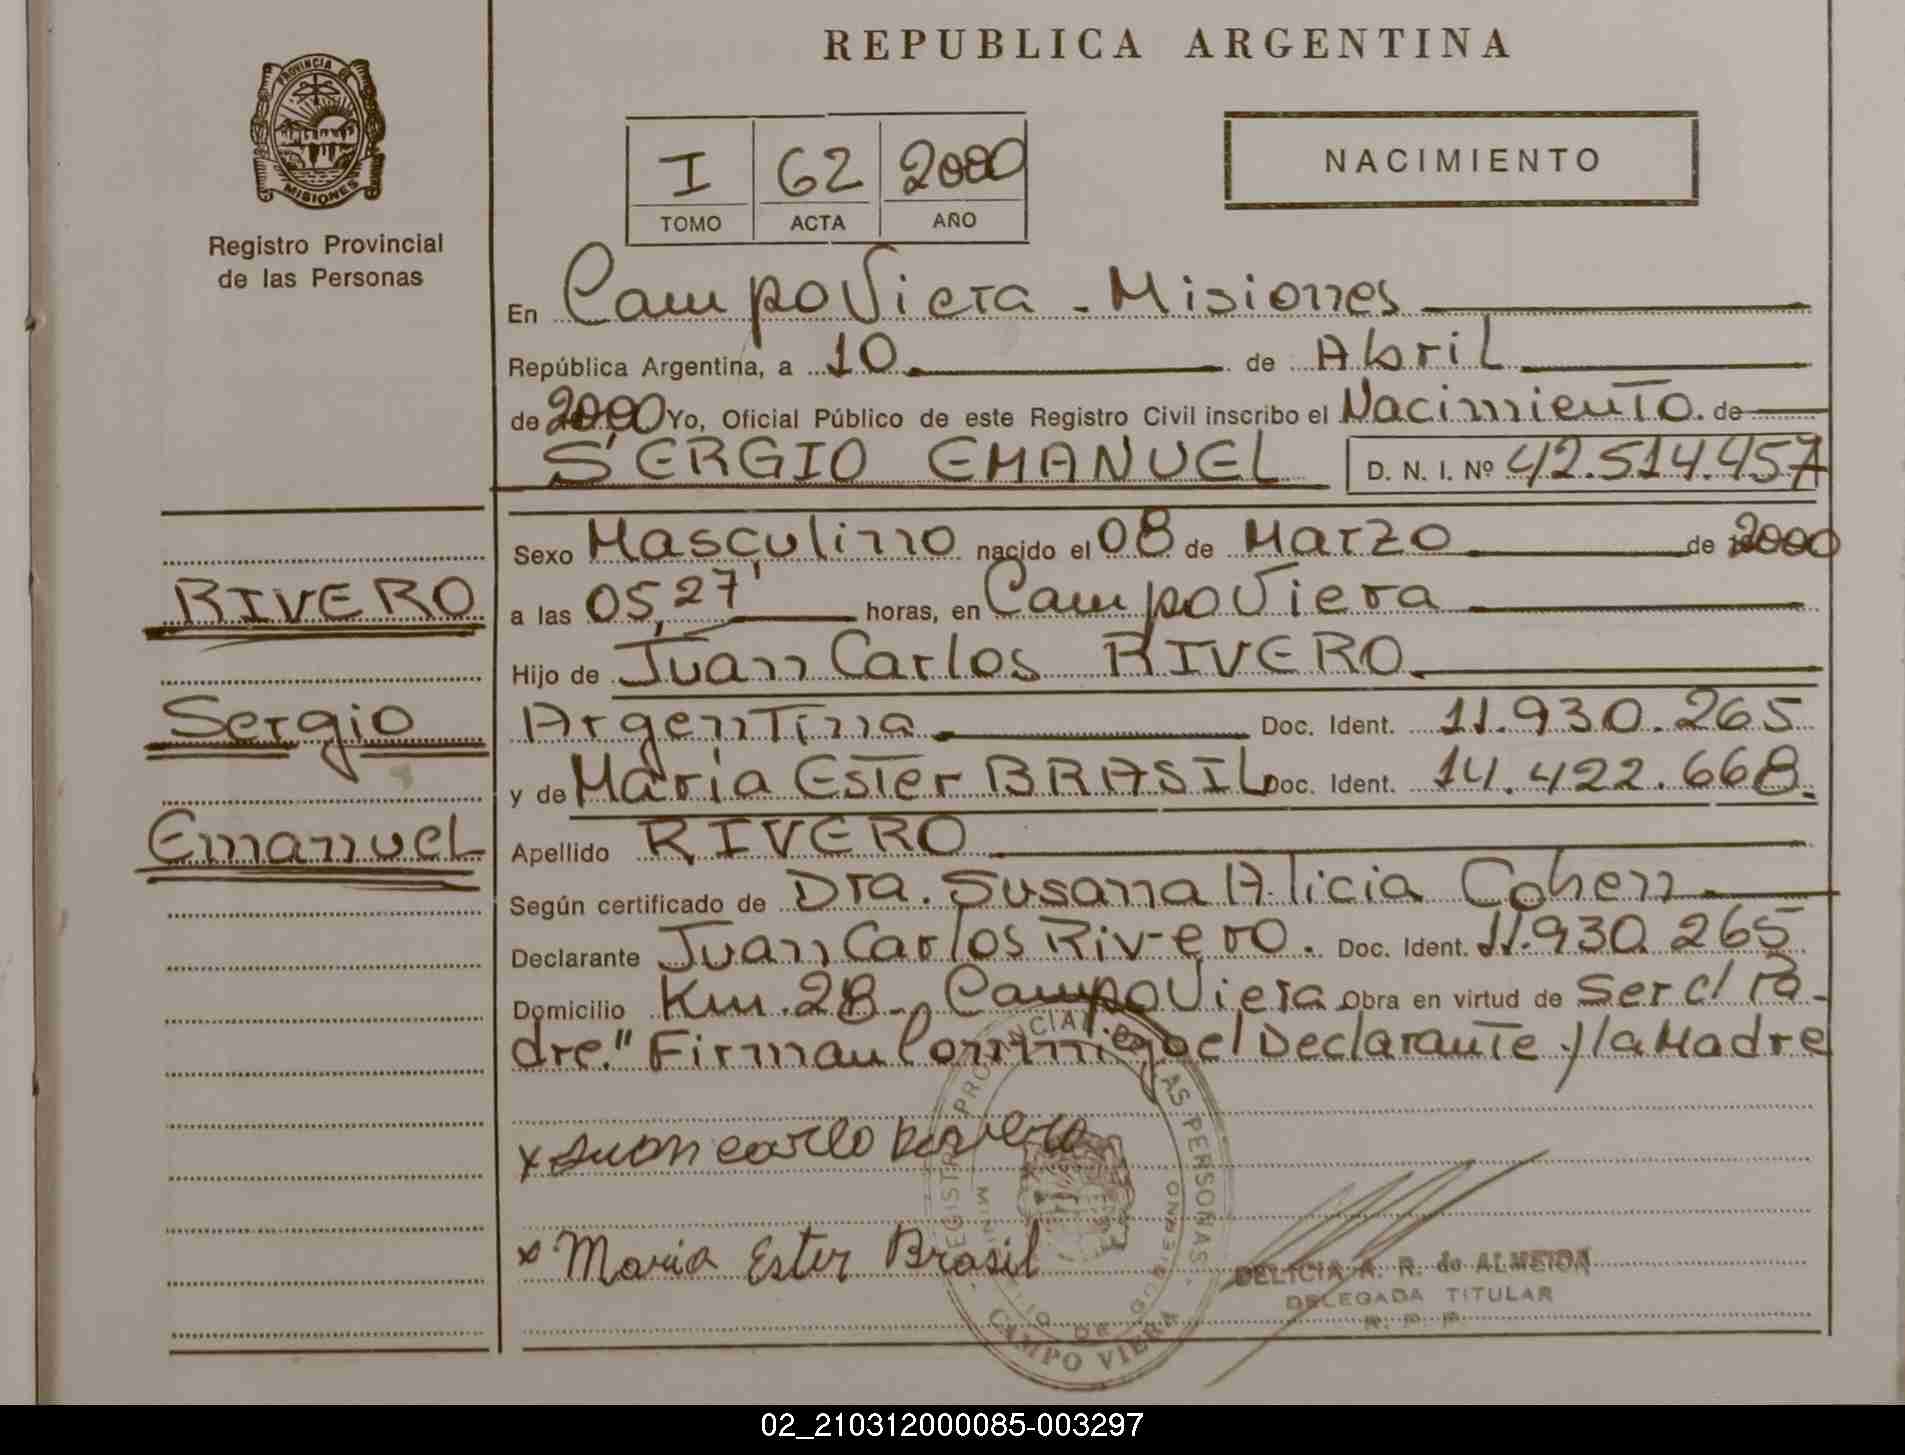 PROVINCIA DE
MISIONES
Registro Provincial
de las Personas
REPUBLICA ARGENTINA
I 62 2000
TOMO ACTA AÑO
NACIMIENTO
En Campo Viera - Misiones
República Argentina, a 10 de Abril
de 2000 Yo, Oficial Público de este Registro Civil inscribo el Nacimiento. de
SERGIO EMANUEL D. N. I. Nº 42.514.457
Sexo Masculino nacido el 08 de Marzo de 2000
RIVERO
a las 05,27' horas, en Campo Viera
Hijo de Juan Carlos RIVERO
Sergio
Argentina Doc. Ident. 11.930.265
y de Maria Ester BRASIL Doc. Ident. 14.422.668.
Emanuel
Apellido RIVERO
Según certificado de Dra. Susana Alicia Cohen
Declarante Juan Carlos Rivero. Doc. Ident. 11.930.265
Domicilio Km. 28 - Campo Viera Obra en virtud de ser el Pa-
dre." Firman Conmigo el Declarante y la Madre
x Juan carlo Rivero
x Maria Ester Brasil
REGISTRO PROVINCIAL DE LAS PERSONAS
CAMPO VIERA
DELICIA A. R. de ALMEIDA
DELEGADA TITULAR
R. P. P.
02_210312000085-003297